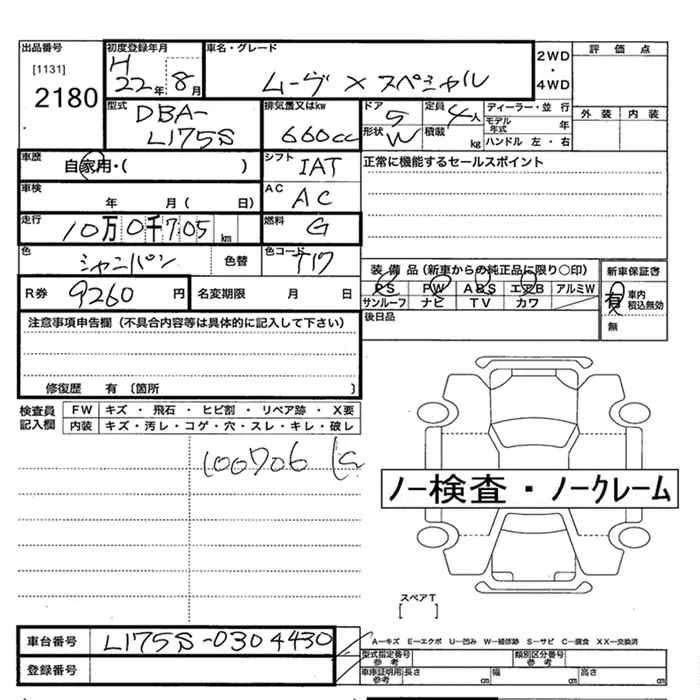 出品番号 初度登録年月 車名・グレード 2WD・4WD 評価点
[1131] H 22年 8月 ムーヴ X スペシャル
2180
型式 排気量又はkw ドア 定員 ディーラー・並行 外装 内装
DBA- 660cc 5 4人 モデル年式 年
L175S 形状 W 積載 kg ハンドル 左・右
車歴 自家用・( ) シフト IAT 正常に機能するセールスポイント
車検 年 月( 日) AC AC
走行 10万0千705km 燃料 G
色 シャンパン 色替 色コード T17 装備品(新車からの純正品に限り○印) 新車保証書
R券 9260円 名変期限 月 日 PS PW ABS エアB アルミW 有 車内税込無効
サンルーフ ナビ TV カワ 無
注意事項申告欄(不具合内容等は具体的に記入して下さい) 後日品
修復歴 有 〔箇所 〕
検査員記入欄 FW キズ・飛石・ヒビ割・リペア跡・X要
内装 キズ・汚レ・コゲ・穴・スレ・キレ・破レ
100706 k
ノー検査・ノークレーム
スペアT
[ ]
車台番号 L175S-0304430 A―キズ E―エクボ U―凹み W―補修跡 S―サビ C―腐食 XX―交換済
登録番号 型式指定番号 参考 類別区分番号 参考
車庫証明用 参考 長さ cm 幅 cm 高さ cm